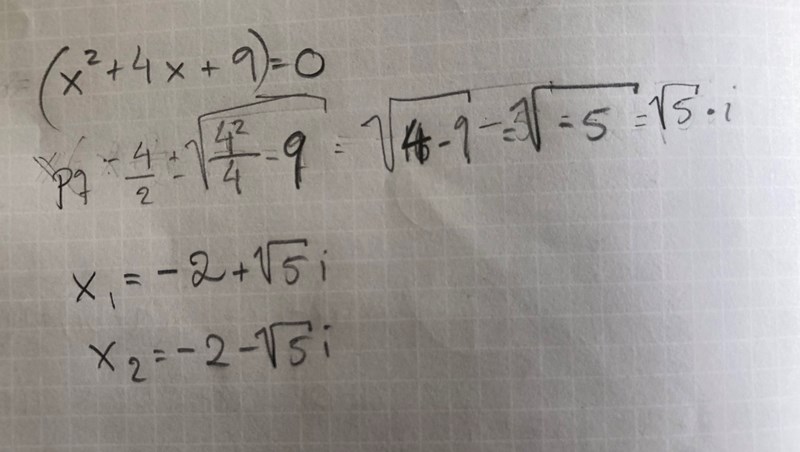 (x² + 4x + 9) = 0
pq - 4/2 ± √(4²/4 - 9) = √(4 - 9) = √(-5) = √5 · i
x₁ = -2 + √5 i
x₂ = -2 - √5 i